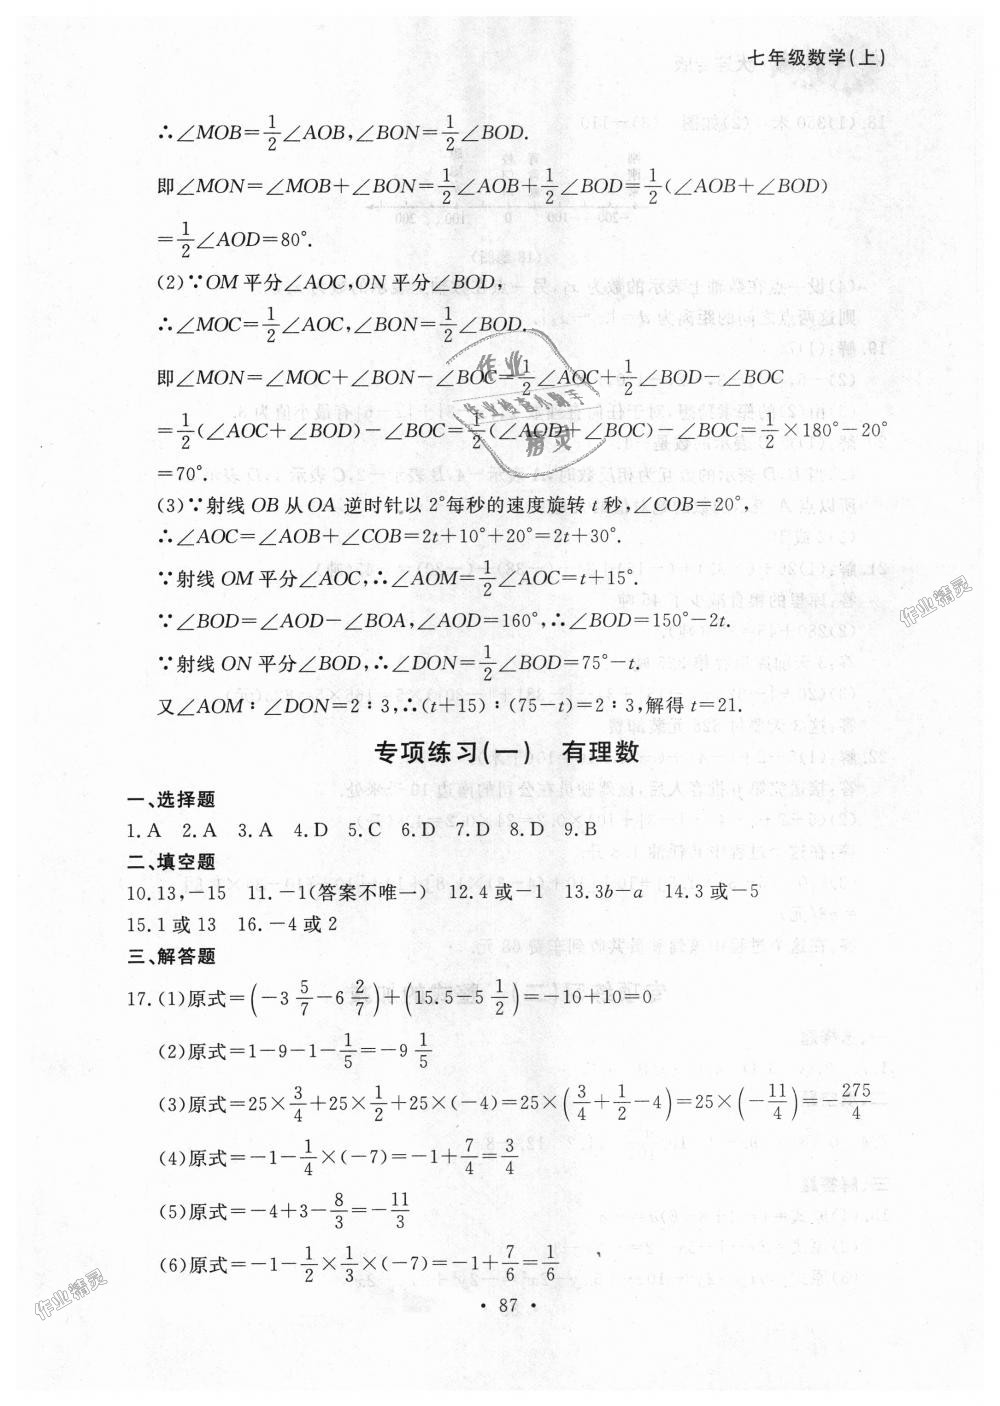 七年级数学(上)
∴∠MOB=1/2∠AOB,∠BON=1/2∠BOD.
即∠MON=∠MOB+∠BON=1/2∠AOB+1/2∠BOD=1/2(∠AOB+∠BOD)
=1/2∠AOD=80°.
(2)∵OM平分∠AOC,ON平分∠BOD,
∴∠MOC=1/2∠AOC,∠BON=1/2∠BOD.
即∠MON=∠MOC+∠BON-∠BOC=1/2∠AOC+1/2∠BOD-∠BOC
=1/2(∠AOC+∠BOD)-∠BOC=1/2(∠AOD+∠BOC)-∠BOC=1/2×180°-20°
=70°.
(3)∵射线OB从OA逆时针以2°每秒的速度旋转t秒,∠COB=20°,
∴∠AOC=∠AOB+∠COB=2t+10°+20°=2t+30°.
∵射线OM平分∠AOC,∴∠AOM=1/2∠AOC=t+15°.
∵∠BOD=∠AOD-∠BOA,∠AOD=160°,∴∠BOD=150°-2t.
∵射线ON平分∠BOD,∴∠DON=1/2∠BOD=75°-t.
又∠AOM∶∠DON=2∶3,∴(t+15)∶(75-t)=2∶3,解得t=21.
专项练习(一) 有理数
一、选择题
1.A 2.A 3.A 4.D 5.C 6.D 7.D 8.D 9.B
二、填空题
10.13,-15 11.-1(答案不唯一) 12.4或-1 13.3b-a 14.3或-5
15.1或13 16.-4或2
三、解答题
17.(1)原式=(-3 5/7-6 2/7)+(15.5-5 1/2)=-10+10=0
(2)原式=1-9-1-1/5=-9 1/5
(3)原式=25×3/4+25×1/2+25×(-4)=25×(3/4+1/2-4)=25×(-11/4)=-275/4
(4)原式=-1-1/4×(-7)=-1+7/4=3/4
(5)原式=-4+3-8/3=-11/3
(6)原式=-1-1/2×1/3×(-7)=-1+7/6=1/6
• 87 •
作业
作业检查小助手
精灵
作业精灵
作业精灵